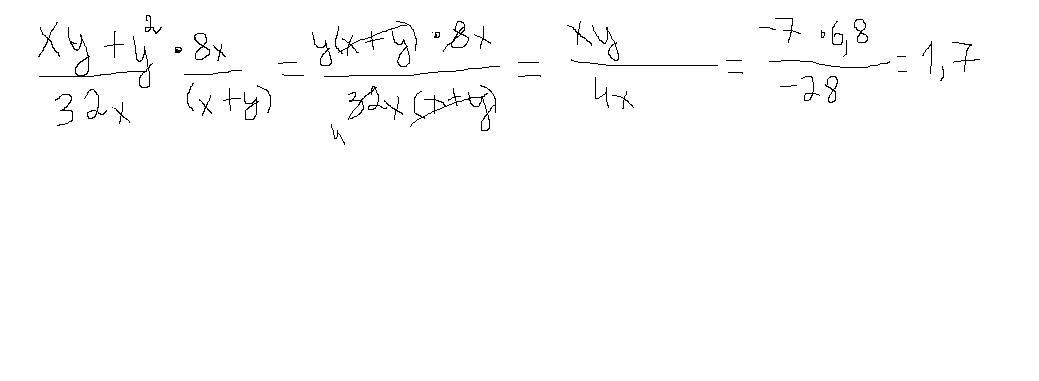 (xy + y²)/(32x) · 8x/(x + y) = (y(x + y) · 8x)/(32x(x + y)) 4 = xy/(4x) = (-7 · 6,8)/(-28) = 1,7